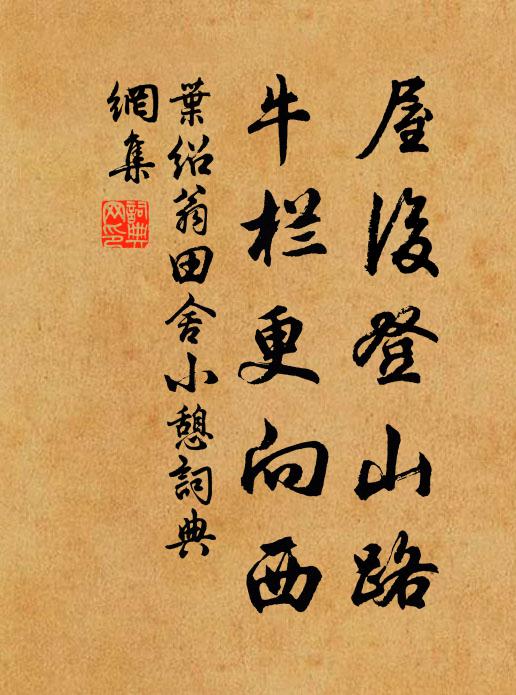 屋後登山路
牛栏更向西
葉紹翁田舍小憩詞典
網集
詞典网印